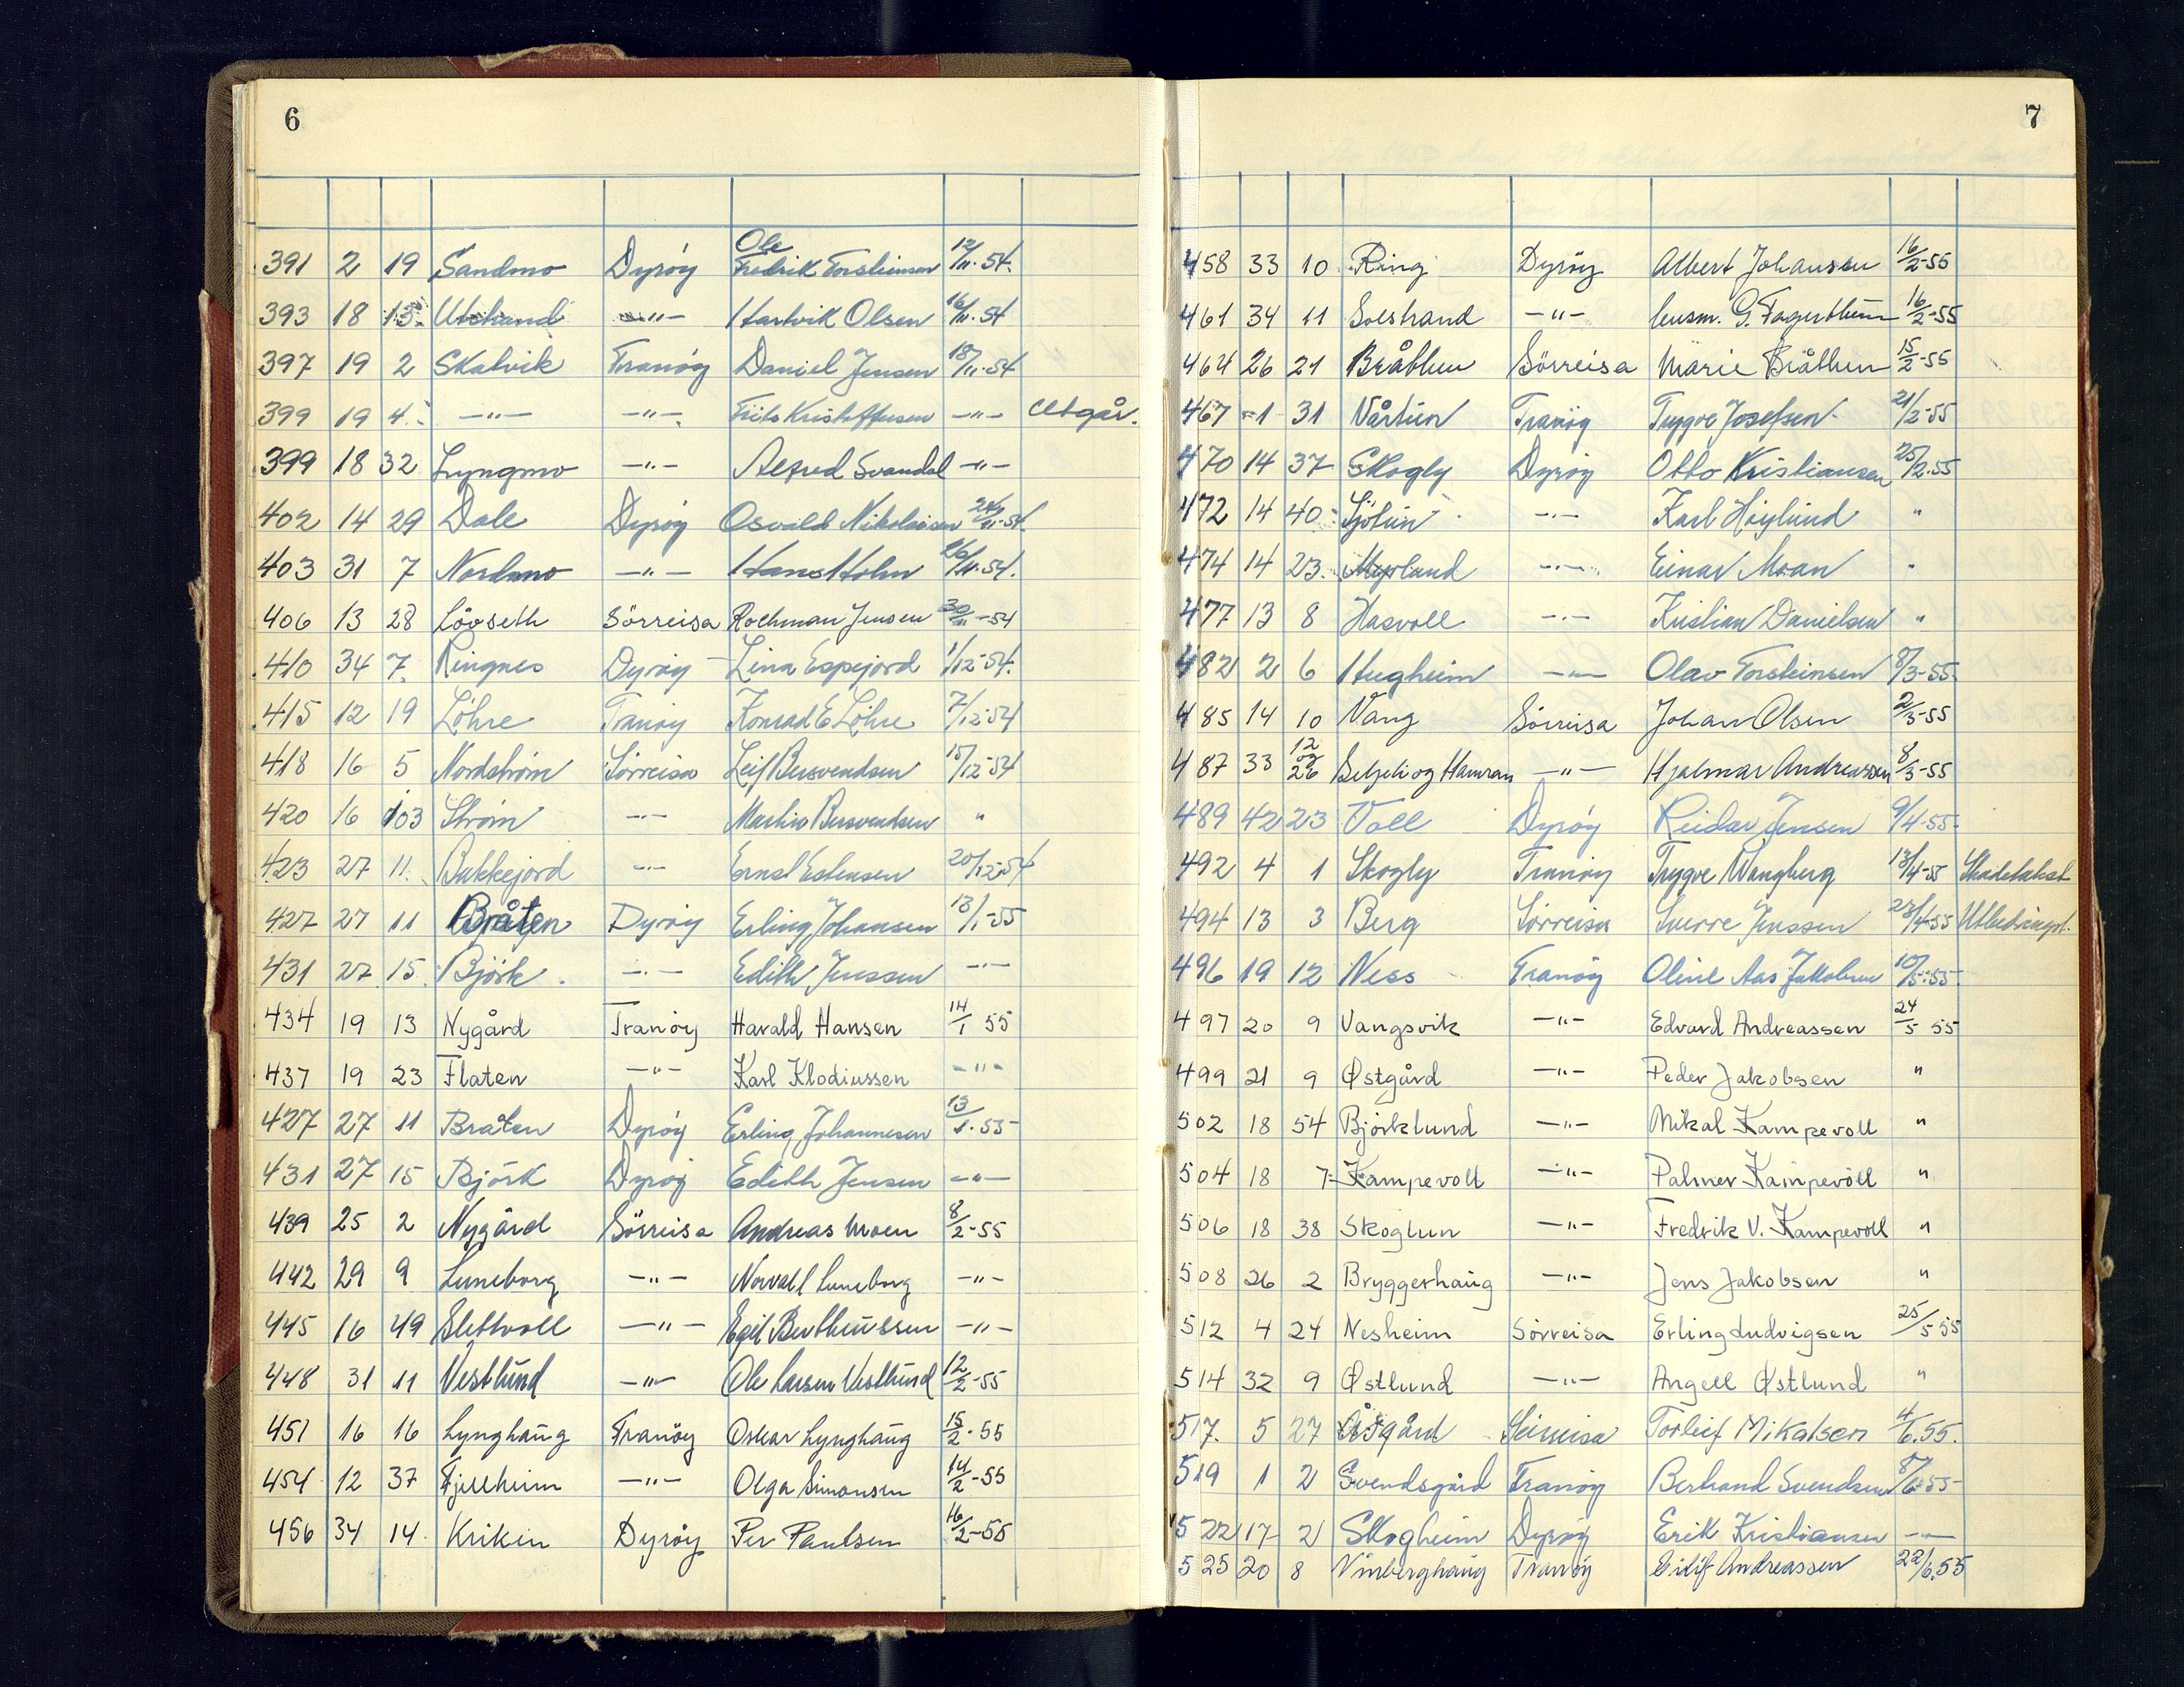 6
391 2 19 Sandmo Dyröy Ole Fredrik Torsteinsen 12/11-54.
393 18 13 Utstrand -"- Hartvik Olsen 16/11-54
397 19 2 Skatvik Tranöy Daniel Jensen 18/11-54
399 19 4 -"- -"- Frits Kristoffersen -"- Utgår.
399 18 32 Lyngmo -"- Alfred Svandal -"-
402 14 29 Dale Dyröy Osvald Nikolaisen 24/11-54.
403 31 7 Nordmo -"- Hans Holm 26/11-54.
406 13 28 Lövseth Sörreisa Rochman Jensen 30/11-54
410 34 7 Ringnes Dyröy Lina Espejord 1/12-54.
415 12 19 Löhre Tranöy Konrad E Löhre 7/12-54
418 16 5 Nordström Sörreisa Leif Bersvendsen 15/12-54
420 16 103 Ström -"- Martin Bersvendsen "
423 27 11 Bakkejord -"- Ernst Estensen 20/12-54
427 27 11 Bråten Dyröy Erling Johansen 13/1-55
431 27 15 Björk -"- Edith Jenssen -"-
434 19 13 Nygård Tranöy Harald Hansen 14/1 55
437 19 23 Flaten -"- Karl Klodiussen -"-
427 27 11 Bråten Dyröy Erling Johannesen 13/1-55
431 27 15 Björk Dyröy Edith Jensen -"-
439 25 2 Nygård Sörreisa Andreas Moen 8/2-55
442 29 9 Luneborg -"- Norvall Luneborg -"-
445 16 49 Slettvoll -"- Egil Bertheussen -"-
448 31 11 Vestlund -"- Ole Larsen Vestlund 12/2-55
451 16 16 Lynghaug Tranöy Oskar Lynghaug 15/2-55
454 12 37 Fjellheim -"- Olga Simonsen 14/2-55
456 34 14 Kriken Dyröy Per Paulsen 16/2-55
7
458 33 10 Ring Dyröy Albert Johansen 16/2-55
461 34 11 Solstrand -"- G. Fagertheim 16/2-55
464 26 21 Bråthen Sörreisa Marie Bråthen 15/2-55
467 1 31 Vårtun Tranöy Trygve Josefsen 21/2-55
470 14 37 Skogly Dyröy Otto Kristiansen 25/2-55
472 14 40 Sjötun -"- Karl Höylund "
474 14 23 Myrland -"- Einar Moan "
477 13 8 Hasvoll -"- Kristian Danielsen "
482 2 6 Hugheim -"- Olav Torsteinsen 8/3-55
485 14 10 Vang Sörreisa Johan Olsen 2/3-55
487 33 12 og 26 Seljeli og Hamran -"- Hjalmar Andreassen 8/3-55
489 42 23 Voll Dyröy Reidar Jensen 9/4-55
492 4 1 Skogly Tranöy Trygve Wangberg 13/4-55 Skadetakst
494 13 3 Berg Sörreisa Sverre Jenssen 23/4-55 Utbedringst.
496 19 12 Ness Tranöy Oline Aas Jakobsen 10/5-55
497 20 9 Vangsvik -"- Edvard Andreassen 24/5 55
499 21 9 Østgård -"- Peder Jakobsen "
502 18 54 Björklund -"- Mikal Kampevoll "
504 18 7 Kampevoll -"- Palmer Kampevoll "
506 18 38 Skoglun -"- Fredrik V. Kampevoll "
508 26 2 Bryggerhaug -"- Jens Jakobsen "
512 4 24 Nesheim Sörreisa Erling Ludvigsen 25/5 55
514 32 9 Østlund -"- Angell Østlund "
517. 5 27 Åsgård Sörreisa Torleif Mikalsen 4/6.55.
519 1 2 Svendsgård Tranöy Bertrand Svendsen 8/6-55
522 17 2 Skogheim Dyröy Erik Kristiansen -"-
525 20 8 Vinberghaug Tranöy Eilif Andreassen 22/6.55